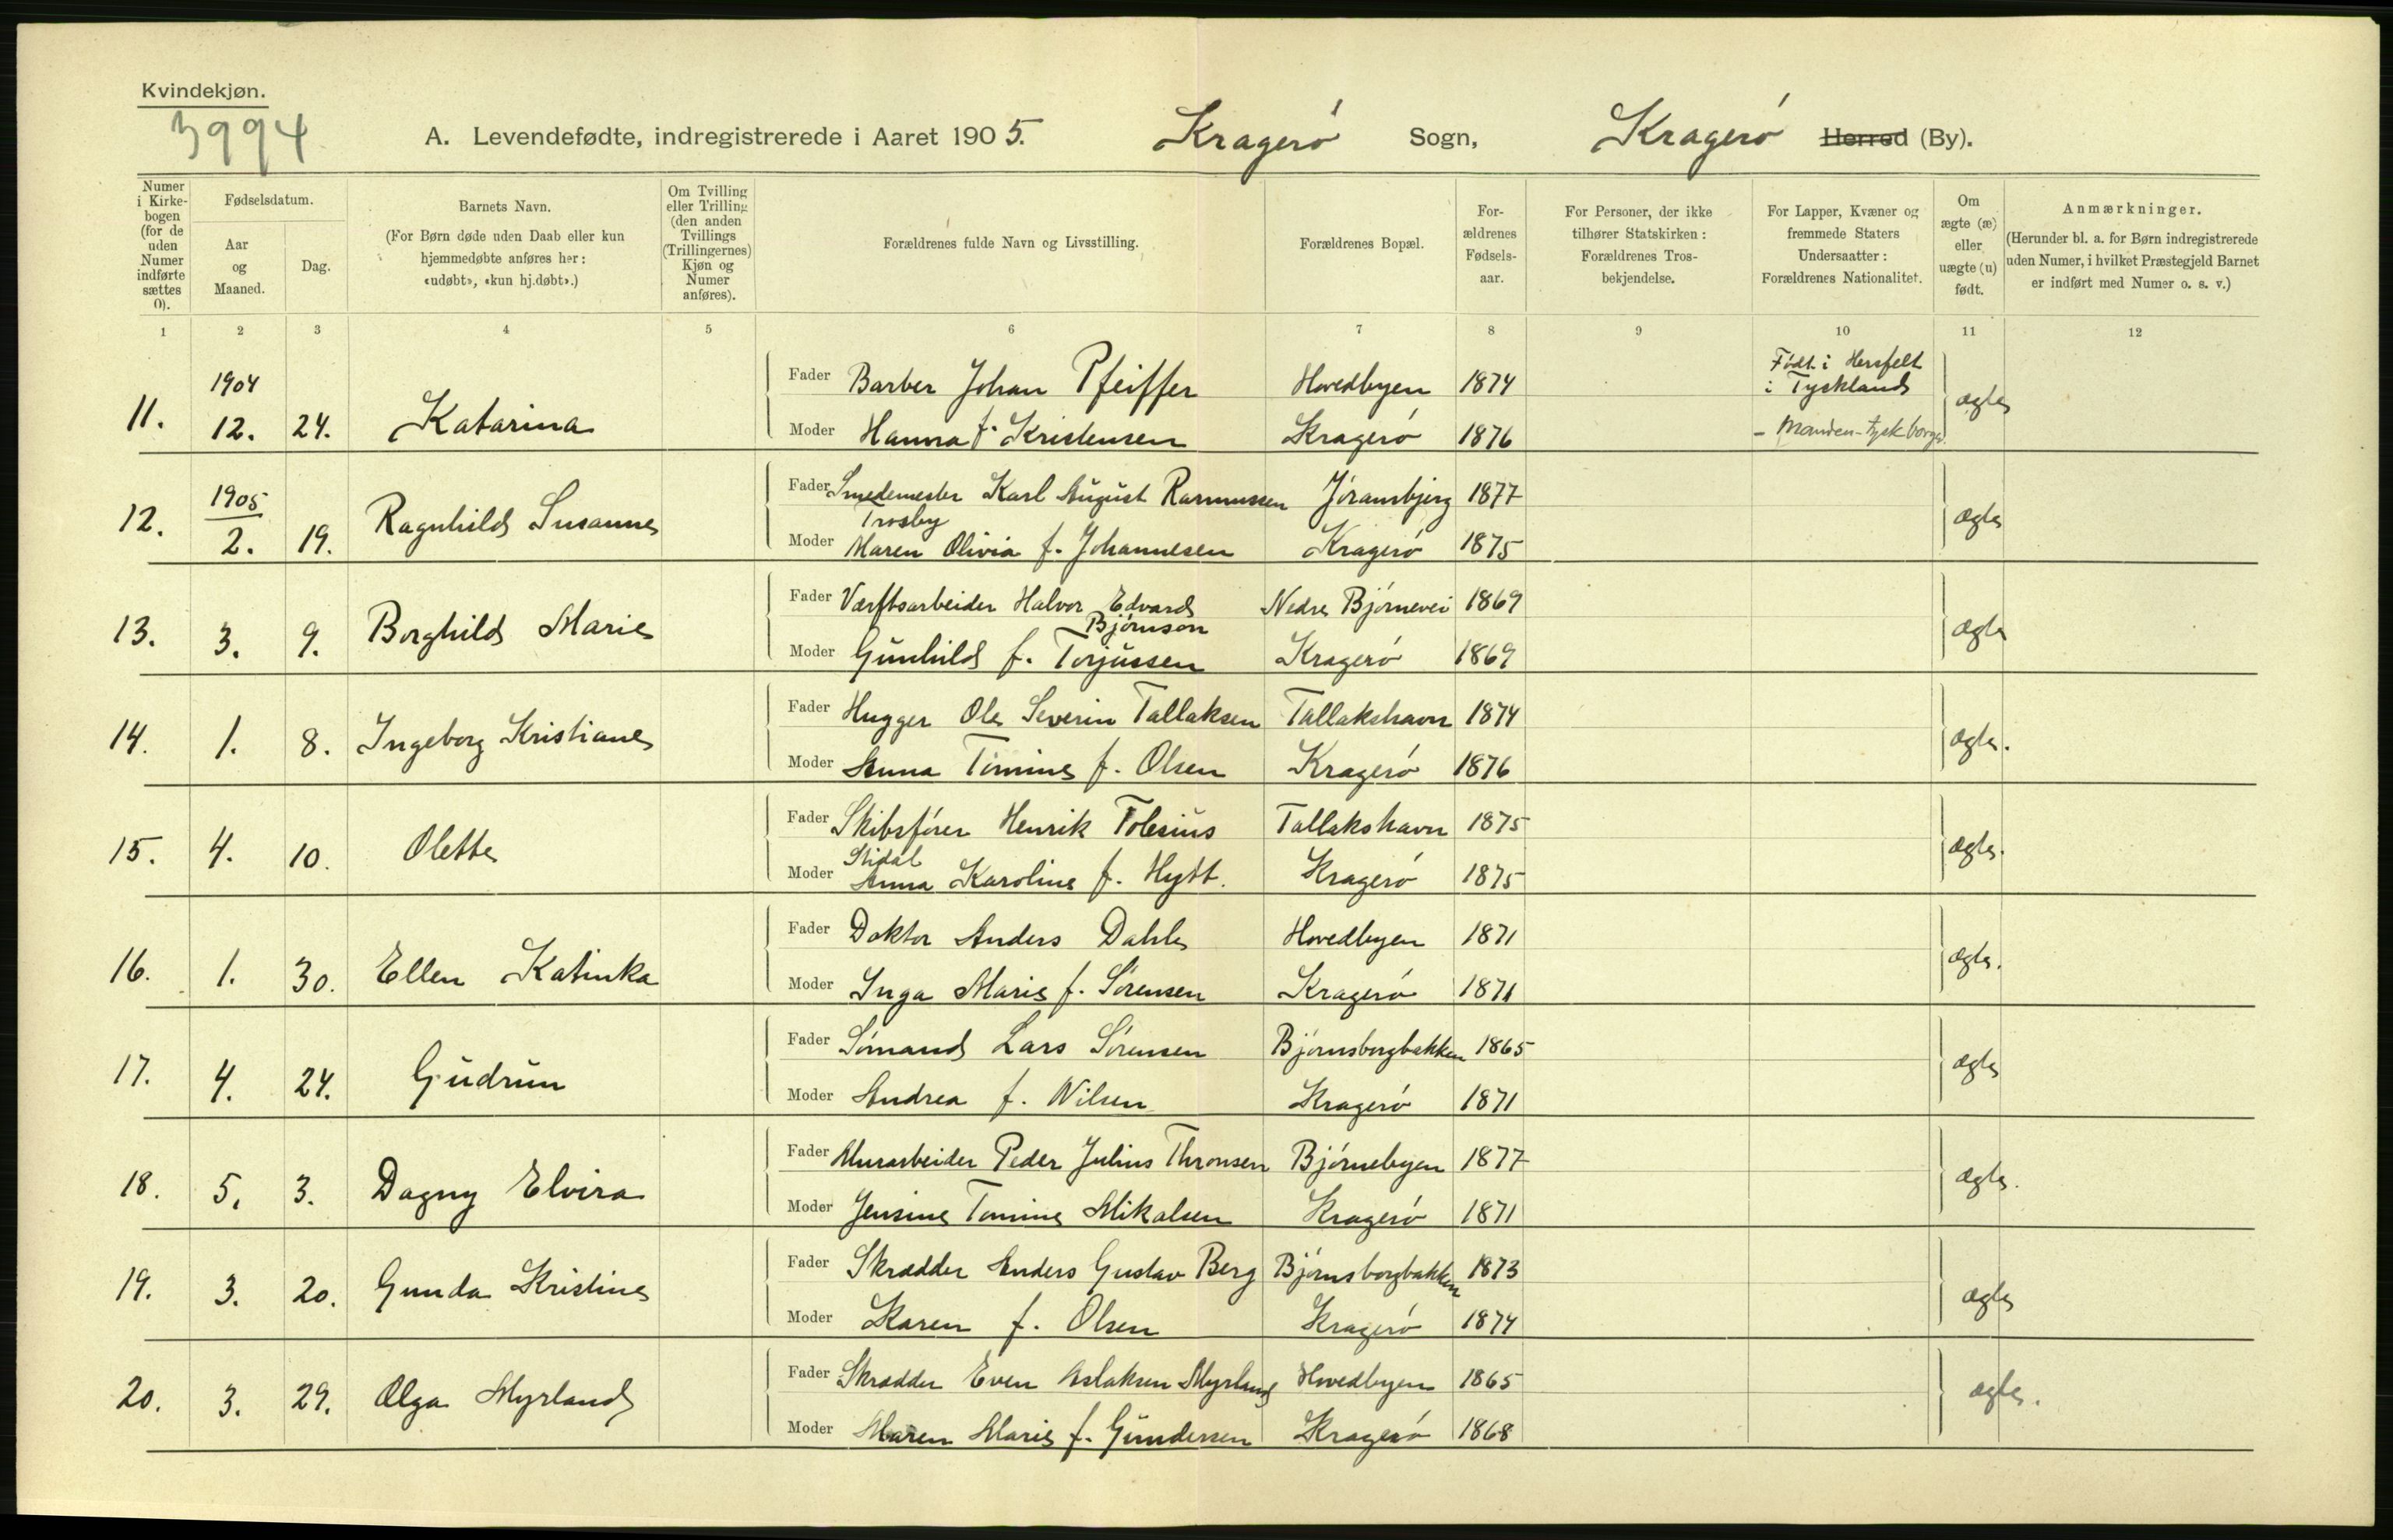 Kvindekjøn.
3994
A. Levendefødte, indregistrerede i Aaret 1905. Kragerø Sogn, Kragerø Herred (By).
Numer i Kirkebogen (for de uden Numer indførte sættes 0).
Fødselsdatum.
Aar og Maaned.
Dag.
Barnets Navn.
(For Børn døde uden Daab eller kun hjemmedøbte anføres her: «udøbt», «kun hj.døbt».)
Om Tvilling eller Trilling (den anden Tvillings (Trillingernes) Kjøn og Numer anføres).
Forældrenes fulde Navn og Livsstilling.
Forældrenes Bopæl.
Forældrenes Fødselsaar.
For Personer, der ikke tilhører Statskirken: Forældrenes Trosbekjendelse.
For Lapper, Kvæner og fremmede Staters Undersaatter: Forældrenes Nationalitet.
Om ægte (æ) eller uægte (u) født.
Anmærkninger.
(Herunder bl. a. for Børn indregistrerede uden Numer, i hvilket Præstegjeld Barnet er indført med Numer o. s. v.)
1 2 3 4 5 6 7 8 9 10 11 12
1904
11. 12. 24. Katarina
Fader Barber Johan Pfeiffer Hovedbyen 1874 Født i Hersfelt i Tyskland ægte
Moder Hanna f. Kristensen Kragerø 1876 - Manden - tysk borger.
1905
12. 2. 19. Ragnhild Susanne
Fader Smedemester Karl August Rasmussen Jøransbjerg 1877 ægte
Trosby
Moder Maren Olivia f. Johannesen Kragerø 1875
13. 3. 9. Borghild Marie
Fader Værftsarbeider Halvor Edvard Nedre Bjørnevei 1869 ægte
Bjørnson
Moder Gunhild f. Torjussen Kragerø 1869
14. 1. 8. Ingeborg Kristiane
Fader Hugger Ole Severin Tallaksen Tallakshavn 1874 ægte.
Moder Anna Tomine f. Olsen Kragerø 1876
15. 4. 10. Olette
Fader Skibsfører Henrik Tolesius Tallakshavn 1875 ægte.
Stidal
Moder Anna Karoline f. Hytt. Kragerø 1875
16. 1. 30. Ellen Katinka
Fader Doktor Anders Dahle Hovedbyen 1871 ægte.
Moder Inga Marie f. Sørensen Kragerø 1871
17. 4. 24. Gudrun
Fader Sømand Lars Sørensen Bjørnsborgbakken 1865 ægte
Moder Andrea f. Nilsen Kragerø 1871
18. 5. 3. Dagny Elvira
Fader Murarbeider Peder Julius Thronsen Bjørnebyen 1877 ægte.
Moder Jensine Tomine Mikalsen Kragerø 1871
19. 3. 20. Gunda Kristine
Fader Skrædder Anders Gustav Berg Bjørnsborgbakken 1873 ægte
Moder Karen f. Olsen Kragerø 1874
20. 3. 29. Olga Myrland
Fader Skrædder Even Aslaksen Myrland Hovedbyen 1865 ægte.
Moder Maren Marie f. Gundersen Kragerø 1868